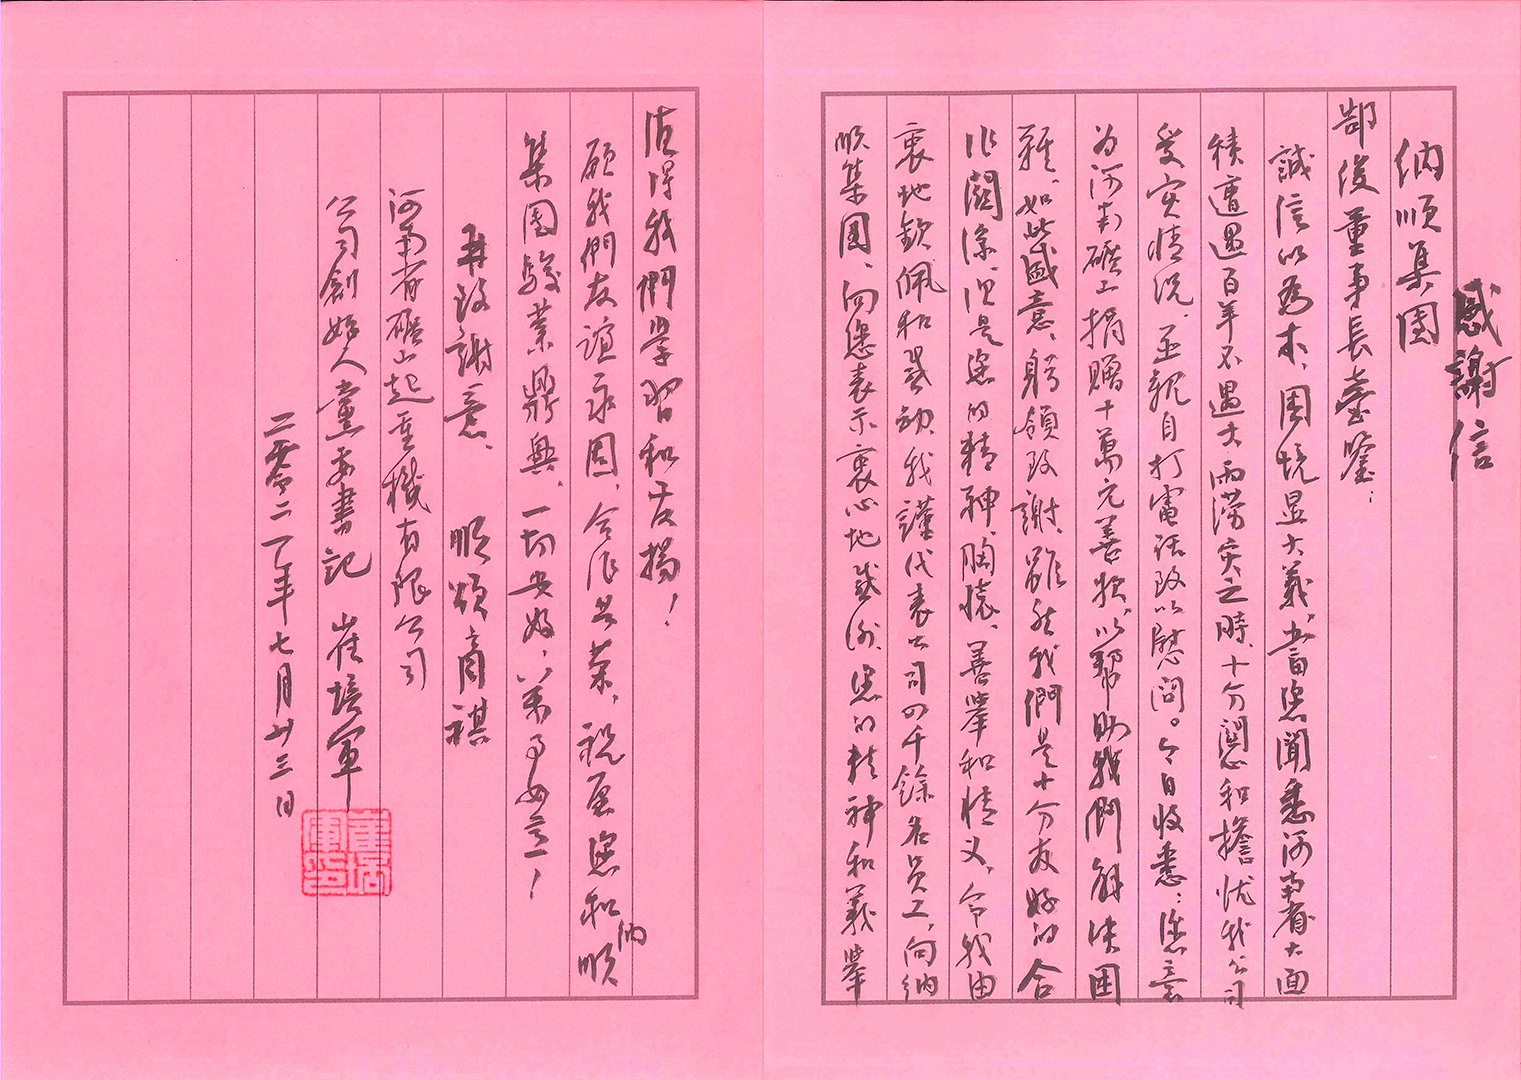 感謝信
納順集團
郜俊董事長臺鑒：
誠信以為本，困境显大義。當您聞悉河南省大面
積遭遇百年不遇大雨涝灾之時，十分關心和擔忧我公司
受灾情况，並親自打電話致以慰問。今日收悉：您意
为河南礦山捐贈十萬元善款，以幫助我們解决困
難。如此盛意，躬領致謝。雖然我們是十分友好的合
作關係，但是您的精神、胸懷、善舉和情义，令我由
衷地欽佩和感动。我謹代表公司四千餘名員工，向納
順集團、向您表示衷心地感谢。您的精神和義舉
值得我們學習和发揚！
願我們友誼永固，合作共荣，祝愿您和納順
集團駿業鼎興，一切安好，萬事如意！
再致謝意，順頌商祺
河南省礦山起重機有限公司
公司創始人黨委書記 崔培軍
二零二一年七月廿三日
崔培軍印